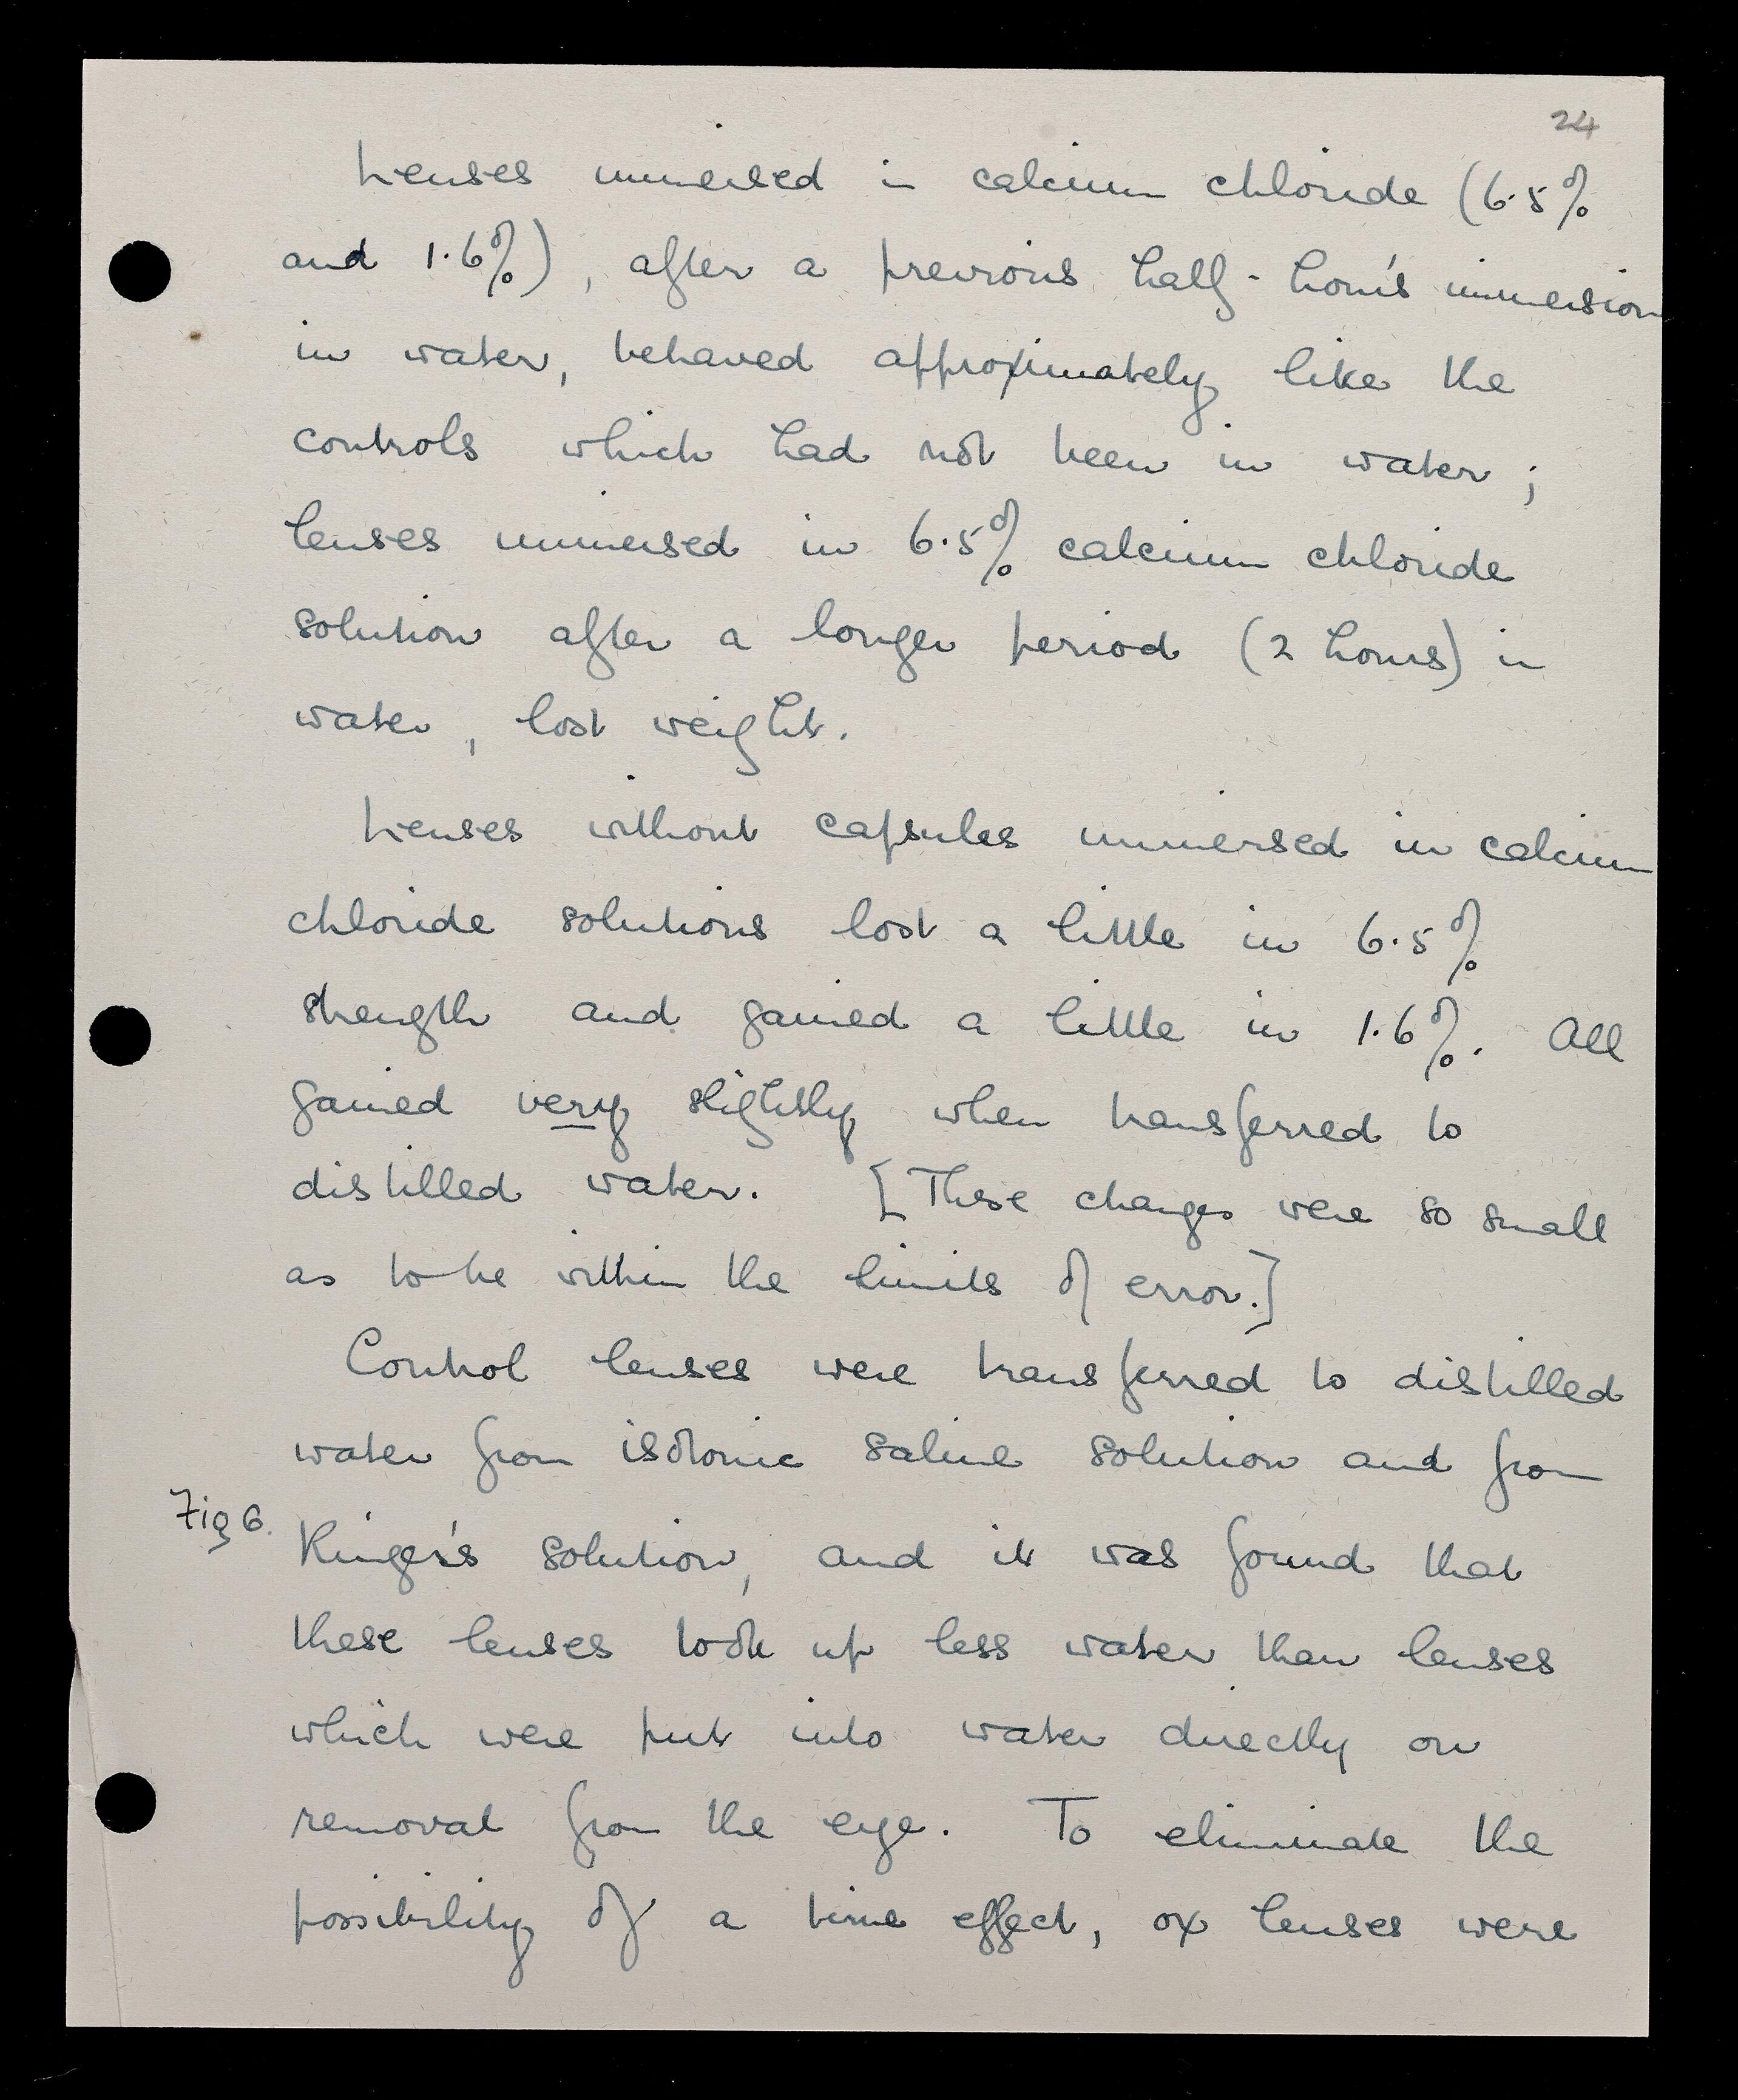 24
Lenses immersed in calcium chloride (6.5%
and 1.6%), after a previous half-hour's immersion
in water, behaved approximately like the
controls which had not been in water;
lenses immersed in 6.5% calcium chloride
solution after a longer period (2 hours) in
water, lost weight.
Lenses without capsules immersed in calcium
chloride solutions lost a little in 6.5%
strength and gained a little in 1.6%. All
gained very slightly when transferred to
distilled water. [These changes were so small
as to be within the limits of error.]
Control lenses were transferred to distilled
water from isotonic saline solution and from
Fig 6. Ringer's solution, and it was found that
these lenses took up less water than lenses
which were put into water directly on
removal from the eye. To eliminate the
possibility of a time effect, ox lenses were